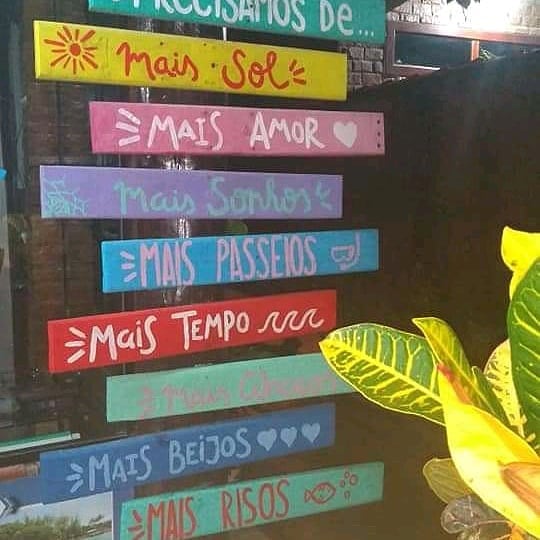 PRECISAMOS De...
mais Sol
MAIS AMOR
mais Sonhos
MAIS PASSEIOS
MAIS TEMPO
mais
MAIS BEIJOS
MAIS RISOS